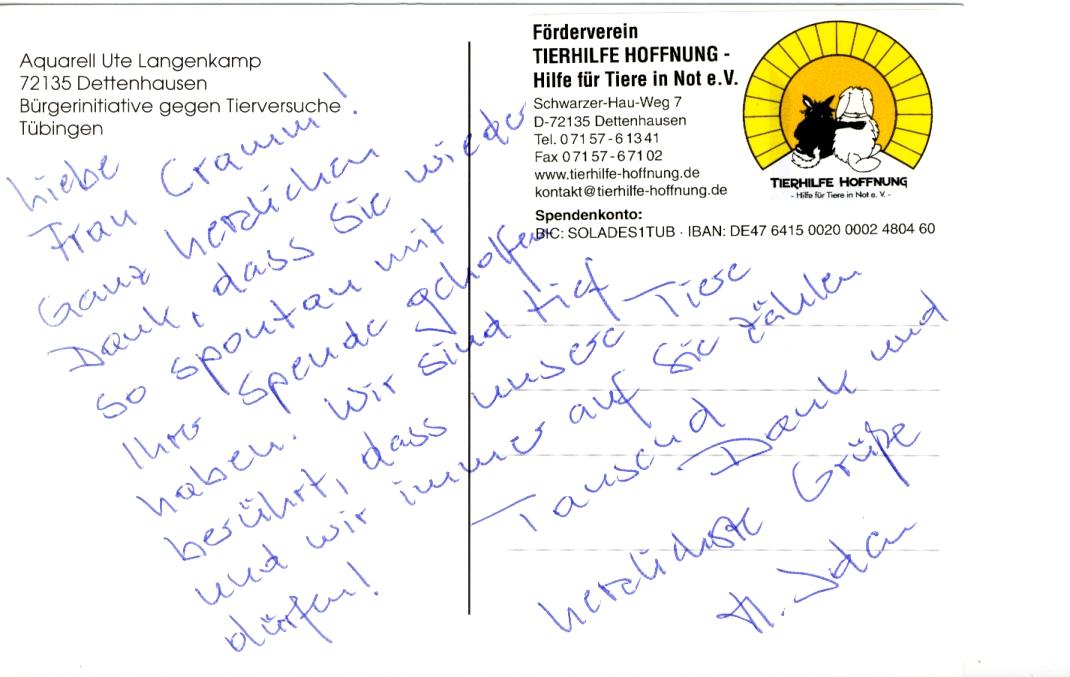 Aquarell Ute Langenkamp
72135 Dettenhausen
Bürgerinitiative gegen Tierversuche
Tübingen
Förderverein
TIERHILFE HOFFNUNG -
Hilfe für Tiere in Not e.V.
Schwarzer-Hau-Weg 7
D-72135 Dettenhausen
Tel. 0 71 57 - 6 13 41
Fax 0 71 57 - 6 71 02
www.tierhilfe-hoffnung.de
kontakt@tierhilfe-hoffnung.de
Spendenkonto:
BIC: SOLADES1TUB · IBAN: DE47 6415 0020 0002 4804 60
TIERHILFE HOFFNUNG
- Hilfe für Tiere in Not e. V. -
Liebe
Frau Cramm!
Ganz herzlichen
Dank, dass Sie wieder
so spontan mit
Ihrer Spende geholfen
haben. Wir sind tief
berührt, dass unsere Tiere
und wir immer auf Sie zählen
dürfen!
Tausend Dank und
herzlichste Grüße